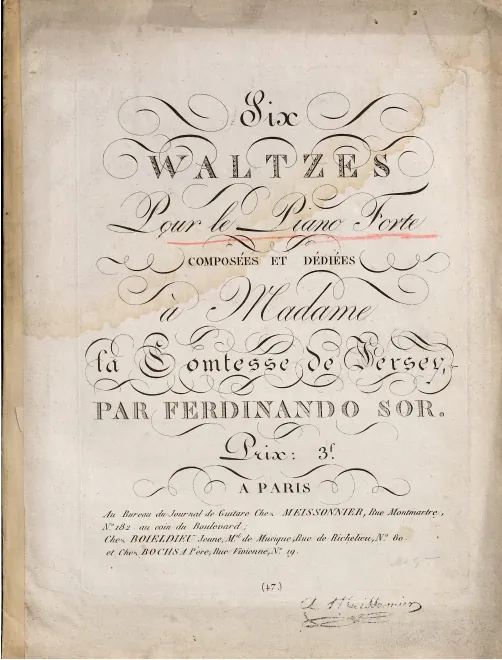 Six
WALTZES
Pour le Piano Forte
COMPOSÉES ET DÉDIÉES
à Madame
la Comtesse de Jersey,
PAR FERDINANDO SOR.
Prix: 3f.
A PARIS
Au Bureau du Journal de Guitare Chez MEISSONNIER, Rue Montmartre,
N.º 182 au coin du Boulevard;
Chez BOIELDIEU Jeune, M.d de Musique, Rue de Richelieu, N.º 80
et Chez BOCHSA Père, Rue Vivienne, N.º 19.
(47.)
A. Meissonnier